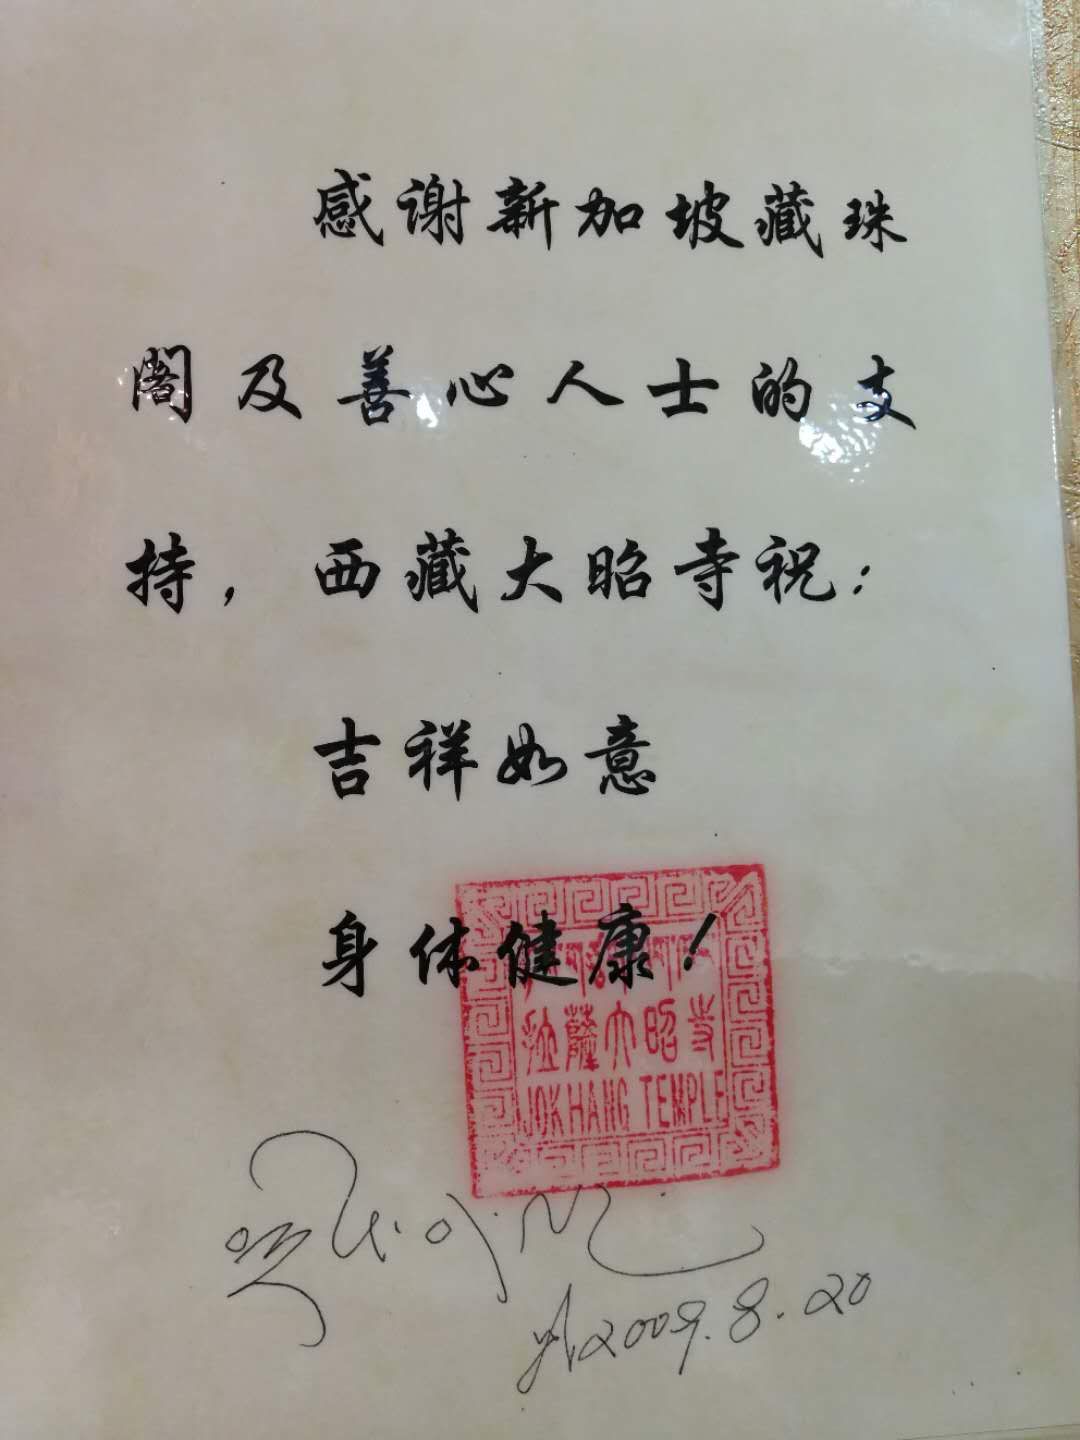 感谢新加坡藏珠
阁及善心人士的支
持，西藏大昭寺祝：
吉祥如意
身体健康！
拉薩大昭寺
JOKHANG TEMPLE
2009.8.20